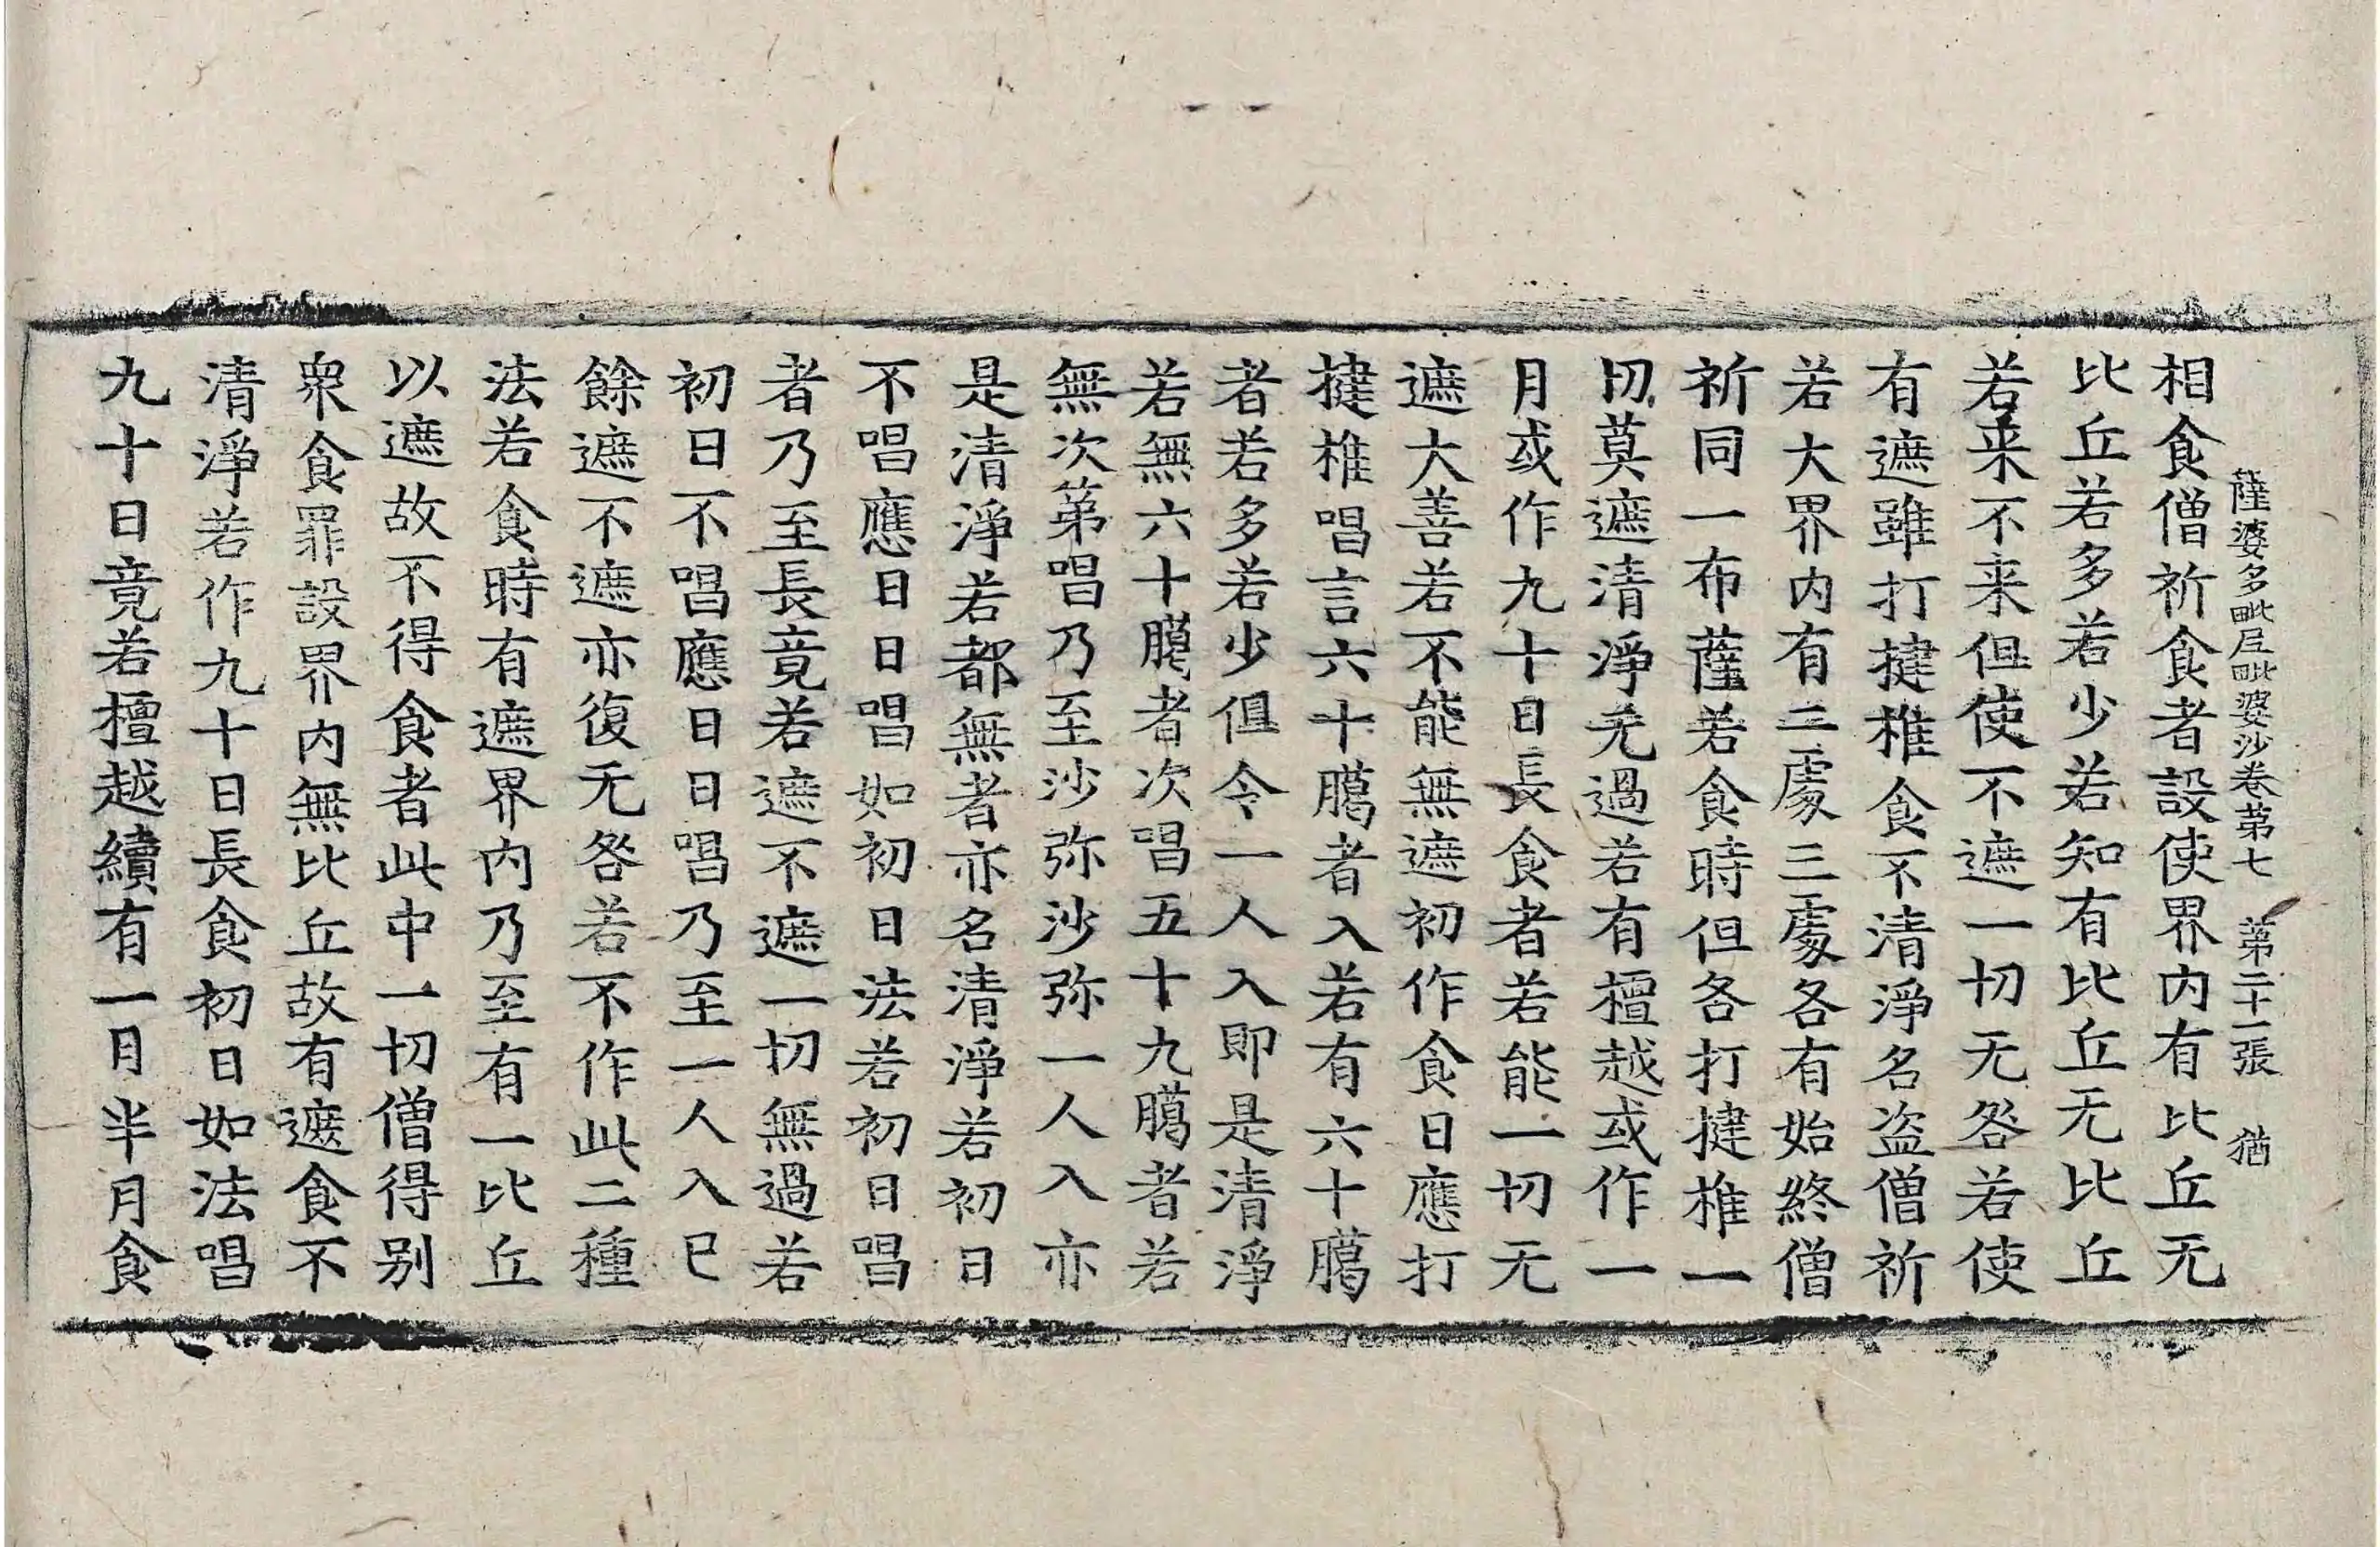 薩婆多毗尼毗婆沙卷第七　第二十一張　猶
相食僧祈食者設使界内有比丘无
比丘若多若少若知有比丘无比丘
若来不来但使不遮一切无咎若使
有遮雖打揵椎食不清淨名盗僧祈
若大界内有二䖏三䖏各有始終僧
祈同一布薩若食時但各打揵椎一
切莫遮清淨无過若有檀越或作一
月或作九十日長食者若能一切无
遮大善若不能無遮初作食日應打
揵椎唱言六十臈者入若有六十臈
者若多若少但令一人入即是清淨
若無六十臈者次唱五十九臈者若
無次第唱乃至沙弥沙弥一人入亦
是清淨若都無者亦名清淨若初日
不唱應日日唱如初日法若初日唱
者乃至長竟若遮不遮一切無過若
初日不唱應日日唱乃至一人入已
餘遮不遮亦復无咎若不作此二種
法若食時有遮界内乃至有一比丘
以遮故不得食者此中一切僧得别
衆食罪設界内無比丘故有遮食不
清淨若作九十日長食初日如法唱
九十日竟若檀越續有一月半月食